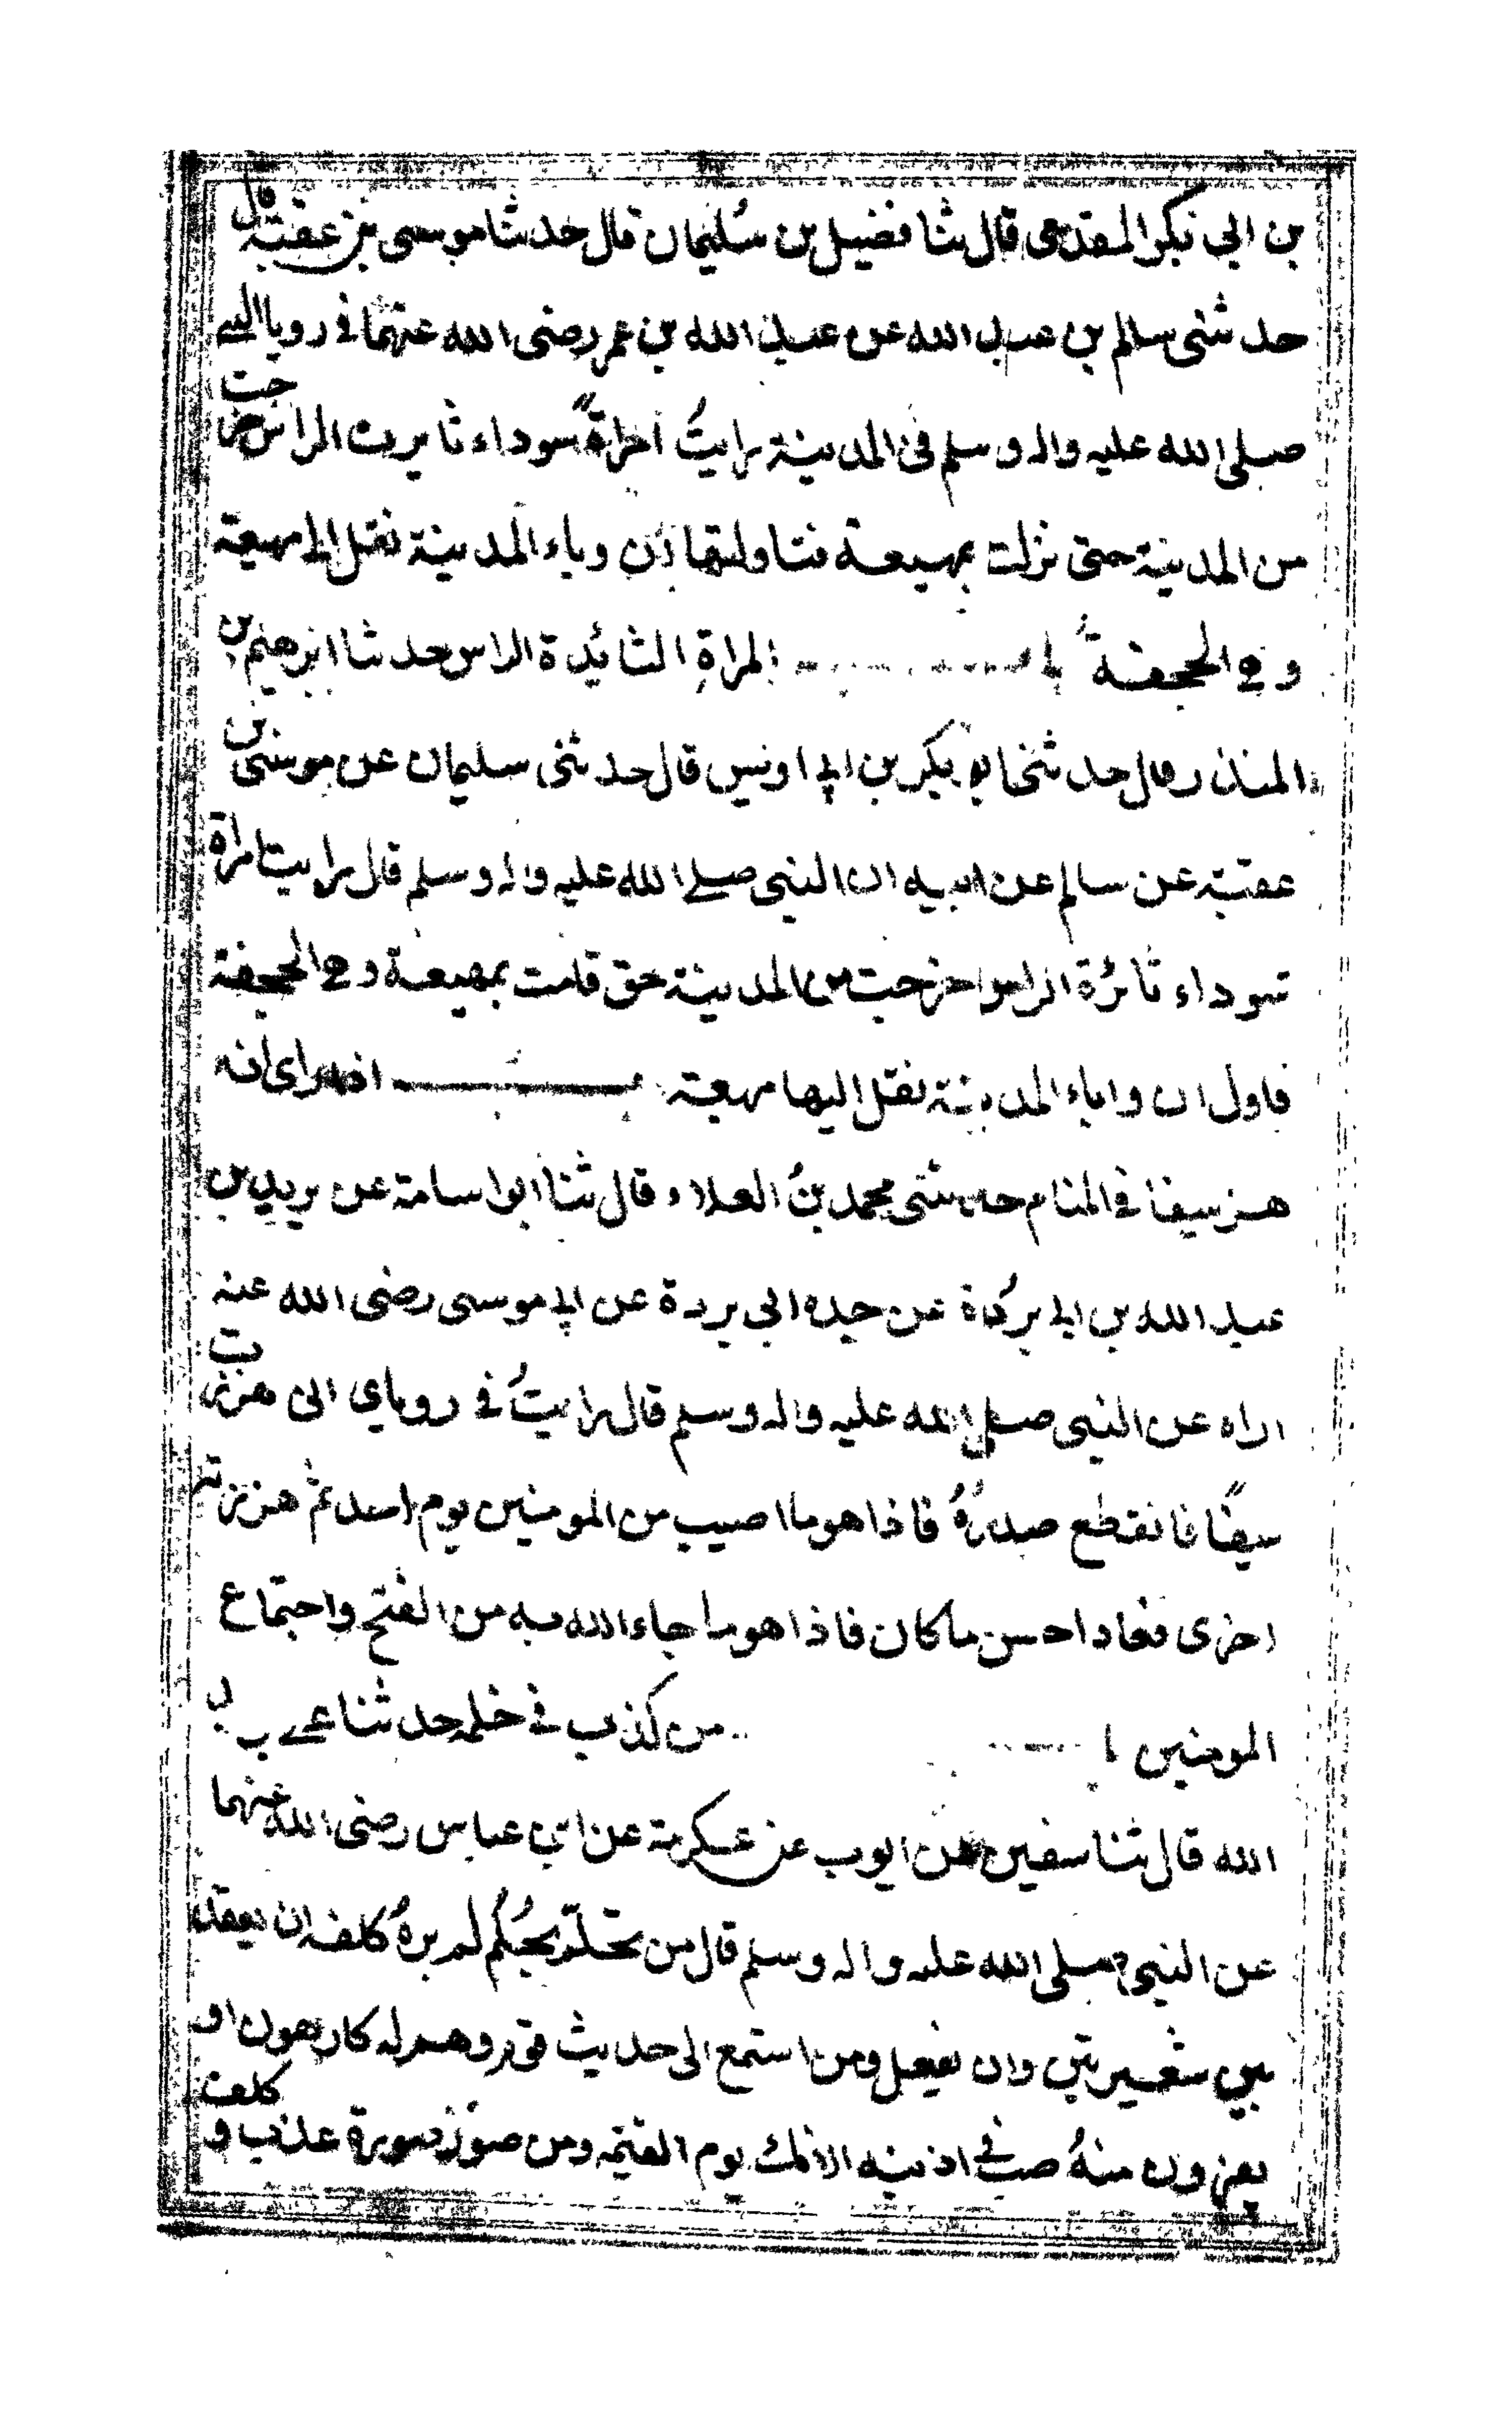 بن ابي بكر المقدمى قال ثنا فضيل بن سُليمان قال حدثنا موسى بن عقبة قال
حدثنى سالم بن عبد الله عن عبد الله بن عمر رضى الله عنهما فى رويا النبى
صلى الله عليه واله وسلم فى المدينة رايتُ امراةً سوداء ثايرة الراس خرجت
من المدينة حتى نزلت بمهيعة فتاولتها ان وباء المدينة نقل الى مهيعة
وهى الجحفة المراة الثايرة الراس حدثنا ابرهيم بن
المنذر قال حدثنى ابو بكر بن ابى اويس قال حدثنى سليمان عن موسى بن
عقبة عن سالم عن ابيه ان النبى صلى الله عليه واله وسلم قال رايت امراة
سوداء ثائرة الراس خرجت من المدينة حتى قامت بمهيعة وهى الجحفة
فاول ان وباء المدينة نقل اليها مهيعة اذا راى انه
هز سيفا فى المنام حدثنى محمد بنُ العلاء قال ثنا ابو اسامة عن بريد بن
عبد الله بن ابى بردة عن جده ابى بردة عن ابى موسى رضى الله عنه
اراه عن النبى صلى الله عليه واله وسلم قال رايتُ فى روياي انى هززت
سيفًا فانقطع صدرُهُ فاذا هو ما اصيب من المومنين يوم احد ثم هززته
اخرى فعاد احسن ما كان فاذا هو ما جاء الله به من الفتح واجتماع
المومنين من كذب فى حلمه حدثنا على بن عبد
الله قال ثنا سفين عن ايوب عن عكرمة عن ابن عباس رضى الله عنهما
عن النبى صلى الله عليه واله وسلم قال من تحلّم بحُلُم لم يرهُ كلف ان يعقد
بين شعيرتين ولن يفعل ومن استمع الى حديث قوم وهم له كارهون او
يفرون منهُ صب فى اذنيه الانك يوم القيمه ومن صوّر صورة عذب و كلف